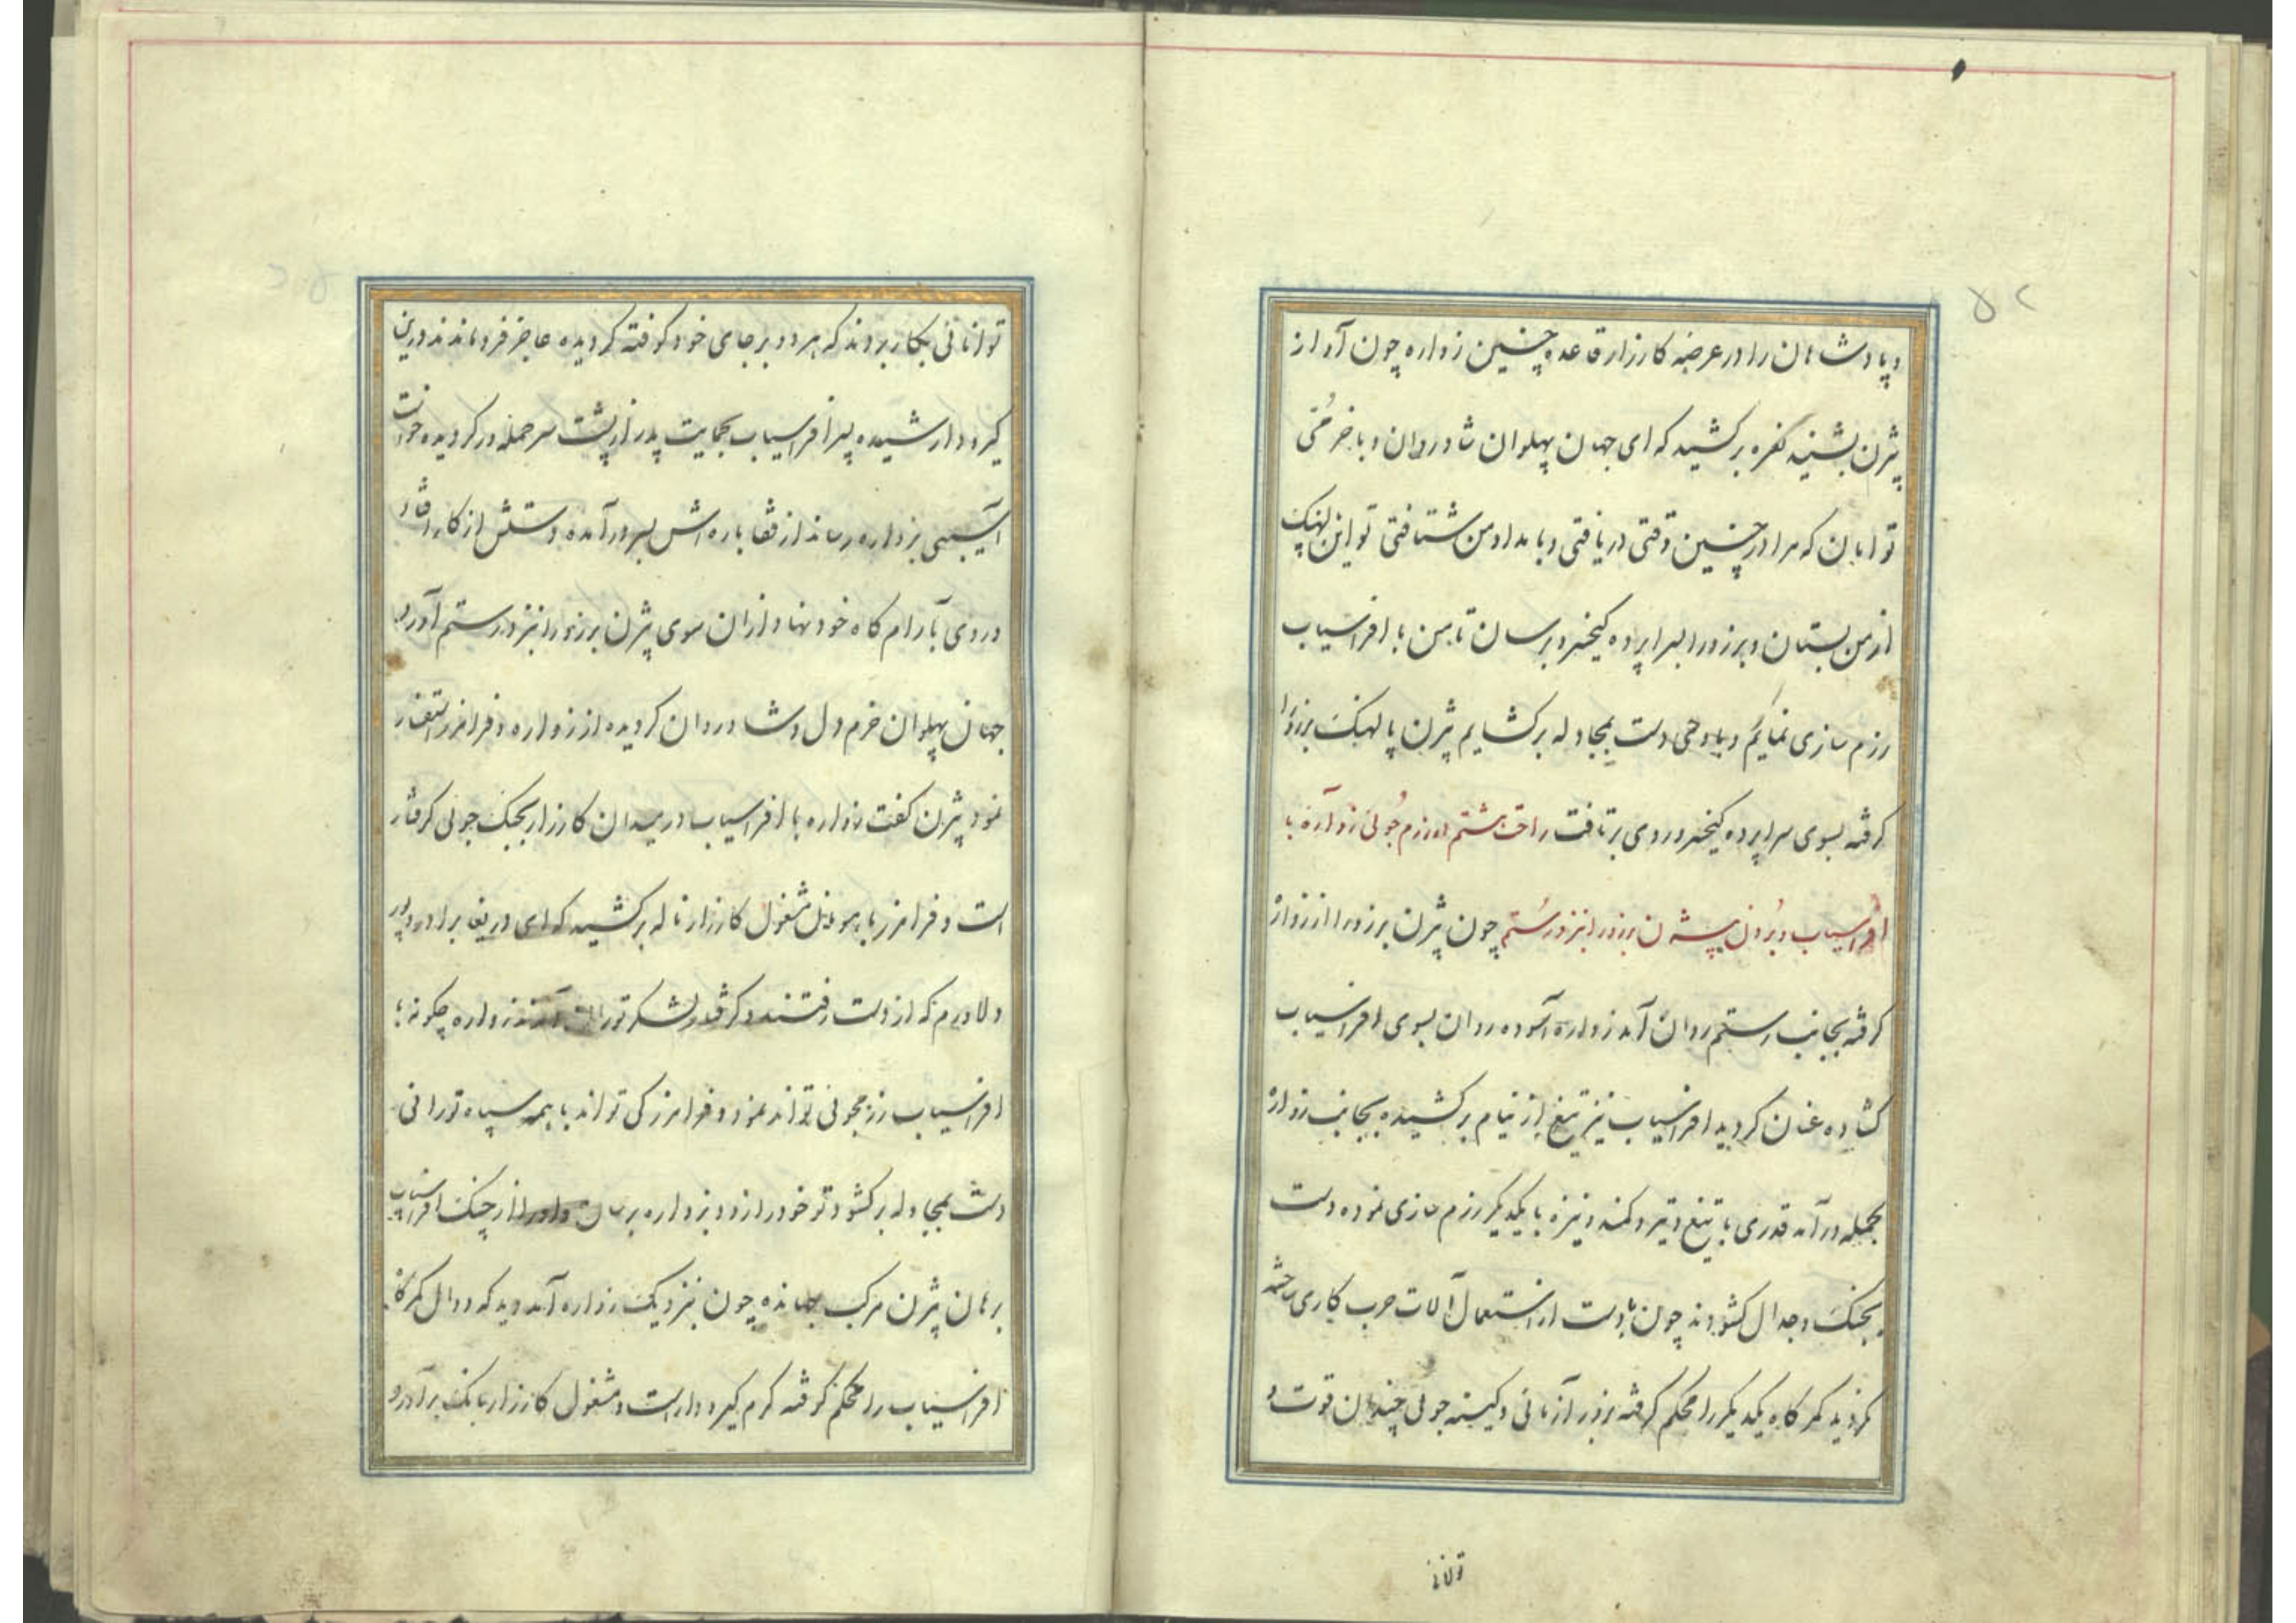 ۵۲
و پادشاهان را در عرضه کارزار قاعده چنین زواره چون آواز
پژن بشنید نعره برکشید که ای جهان پهلوان شاد روان و با خرمی
توامان که مرا در چنین وقتی دریافتی و بامداد من شتافتی تو این پالهنک
از من بستان و برزو را بسراپرده کیخسرو برسان تا من با افراسیاب
رزم سازی نمایم و با وی دست بمجادله برکشایم پژن پالهنک برزو را
کرفته بسوی سراپرده کیخسرو روی برتافت رزم جوئی زواره با
افراسیاب و بردن پیژن برزو را نزد رستم چون پژن برزو را از زواره
کرفته بجانب رستم روان آمد زواره آسوده روان بسوی افراسیاب
کشاده عنان کردید افراسیاب نیز تیغ از نیام برکشیده بجانب زواره
بحمله درآمد قدری با تیغ و تیر و کمند و نیزه با یکدیکر رزم سازی نموده دست
بجنک و جدال کشودند چون با دست از استعمال آلات حرب کاری ساخته
نکردید کمرکاه یکدیکر را محکم کرفته بزور آزمائی و کینه جوئی چندان قوت و
توانائی
توانائی بکار بردند که هر دو بر جای خود کوفته کردیده عاجز فرو ماندند درین
کیر و دار شیده پسر افراسیاب بحمایت پدر از پشت سر حمله ور کردیده خواست
آسیبی بزواره رساند از قضا باره اش بسر درآمده دستش از کار افتاد
و روی بآرام کاه خود نهاد و ازان سوی پژن برزو را نزد رستم آورد
جهان پهلوان خرم دل و شاد روان کردیده از زواره و فرامرز استفسار
نمود پژن کفت زواره با افراسیاب در میدان کارزار بجنک جوئی کرفتار
است و فرامرز با هومان مشغول کارزار ناله برکشید که ای دریغا برادر و پور
دلاورم که از دست رفتند و کرفتار لشکر توران آمدند زواره چکونه با
افراسیاب رزمجوئی تواند نمود و فرامرز کی تواند با همه سپاه تورانی
دست بمجادله برکشود تو خود را زود بزواره برسان و او را از چنک افراسیاب
برهان پژن مرکب جهانده چون نزدیک زواره آمد دید که دوال کمرکاه
افراسیاب را محکم کرفته کرم کیر و دار است و مشغول کارزار بانک برآورد